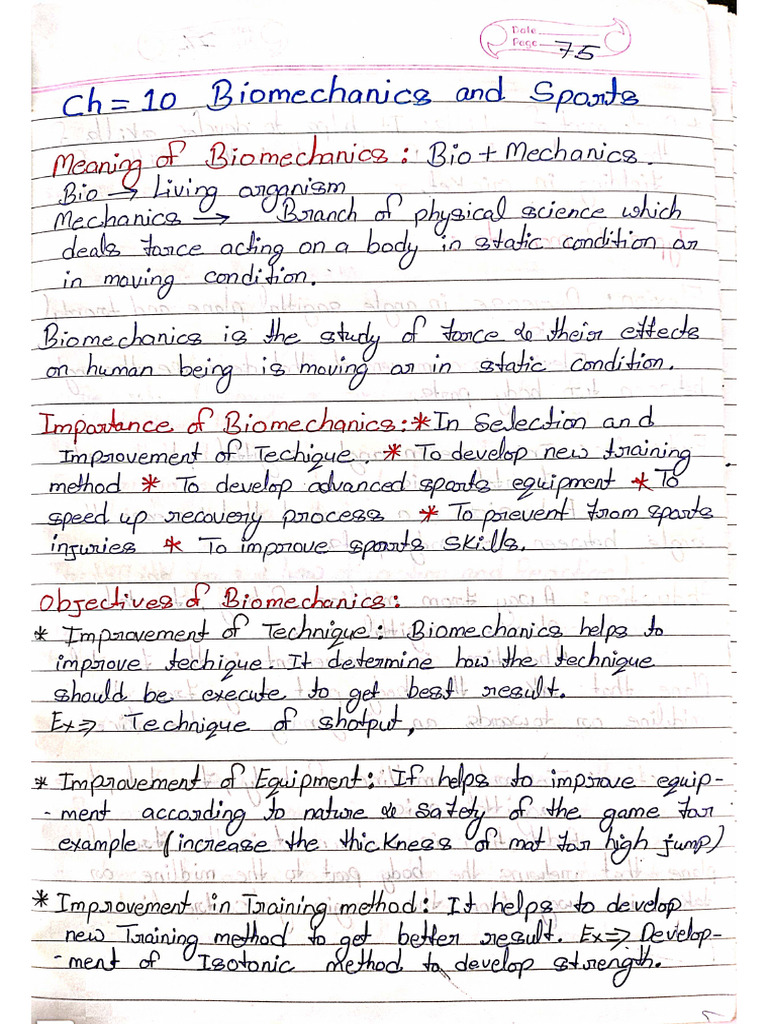 Date
Page 75
Ch = 10 Biomechanics and Sports
Meaning of Biomechanics : Bio + Mechanics.
Bio → Living organism
Mechanics → Branch of physical science which
deals force acting on a body in static condition or
in moving condition.
Biomechanics is the study of force & their effects
on human being is moving or in static condition.
Importance of Biomechanics : * In Selection and
Improvement of Techique. * To develop new training
method * To develop advanced sports equipment * To
speed up recovery process * To prevent from sports
injuries * To improve sports skills.
Objectives of Biomechanics :
* Improvement of Technique : Biomechanics helps to
improve techique. It determine how the technique
should be execute to get best result.
Ex ⇒ Technique of shotput,
* Improvement of Equipment : If helps to improve equip-
-ment according to nature & safety of the game for
example (increase the thickness of mat for high jump)
* Improvement in Training method : It helps to develop
new Training method to get better result. Ex ⇒ Develop-
-ment of Isotonic method to develop strength.